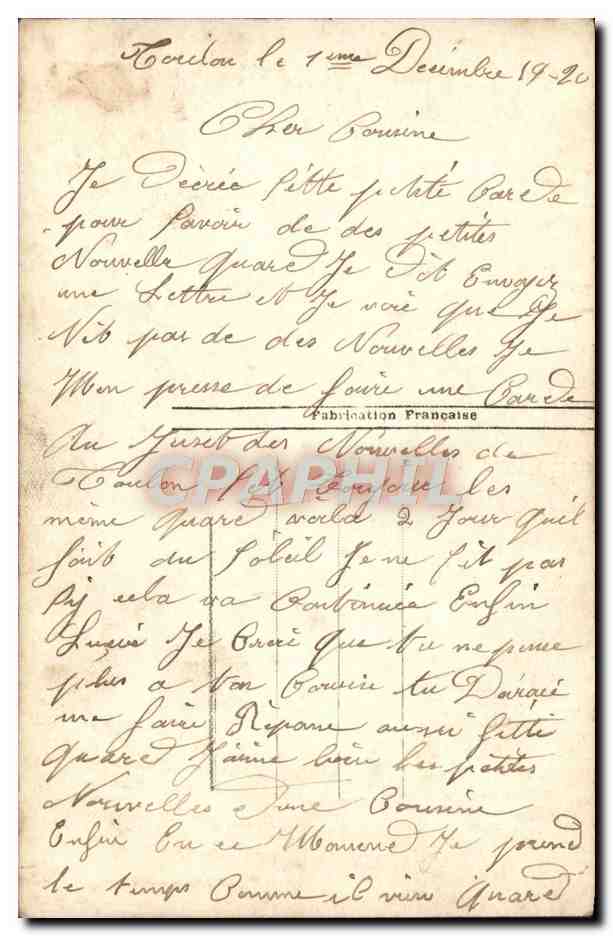 Toulon le 1eme Décembre 19-20
Cher Cousine
Je Décrée Cètte petité Carde
pour Savoir de des petités
Nouvelle quard Je Dit Envoyer
une Lettre et Je voie que Je
Nit par de des Nouvelles Je
Mon presse de faire une Carde
Fabrication Française
Au Juset des Nouvelles de
Toulon Set toujour les
même quard voila 2 Jour quil
fait du Soleil Je ne Sit par
Sy cela va Contenuée Enfin
Je Croie que tu ne pense
plus a ton Cousine tu
me faire Répone aussi
quard J'aime bien les petites
Nouvelles dune Cousine
Enfin En ce Moment Je prend
le temps Comme il vien quard
CPAPHIL